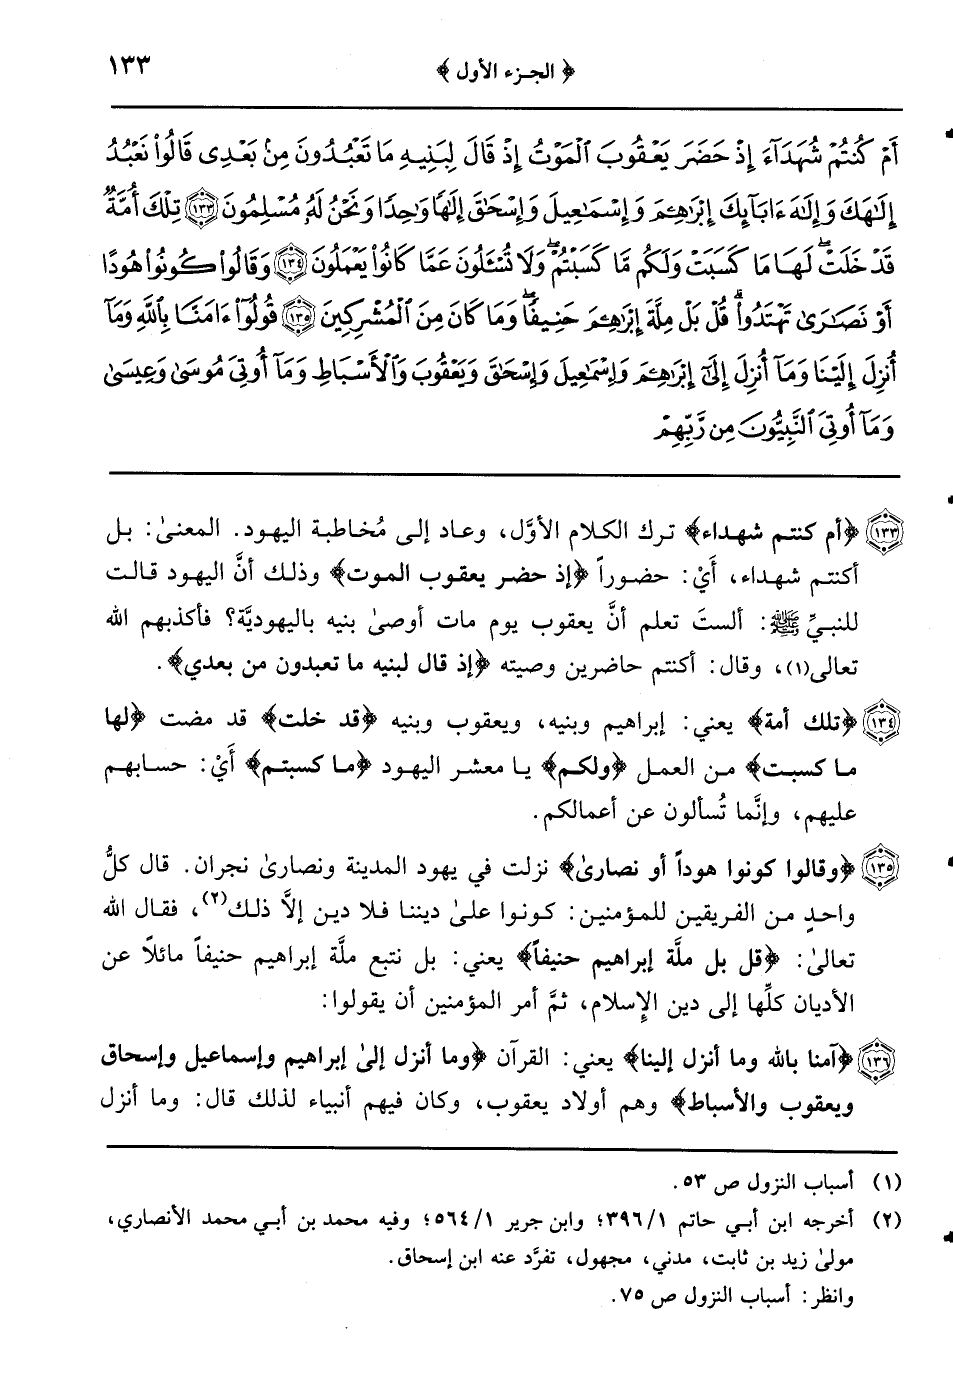 ﴿ الجزء الأول ﴾ ١٣٣
أَمْ كُنتُمْ شُهَدَآءَ إِذْ حَضَرَ يَعْقُوبَ ٱلْمَوْتُ إِذْ قَالَ لِبَنِيهِ مَا تَعْبُدُونَ مِنۢ بَعْدِى قَالُوا۟ نَعْبُدُ
إِلَٰهَكَ وَإِلَٰهَ ءَابَآئِكَ إِبْرَٰهِـۧمَ وَإِسْمَٰعِيلَ وَإِسْحَٰقَ إِلَٰهًا وَٰحِدًا وَنَحْنُ لَهُۥ مُسْلِمُونَ ﴿١٣٣﴾ تِلْكَ أُمَّةٌ
قَدْ خَلَتْ ۖ لَهَا مَا كَسَبَتْ وَلَكُم مَّا كَسَبْتُمْ ۖ وَلَا تُسْـَٔلُونَ عَمَّا كَانُوا۟ يَعْمَلُونَ ﴿١٣٤﴾ وَقَالُوا۟ كُونُوا۟ هُودًا
أَوْ نَصَٰرَىٰ تَهْتَدُوا۟ ۗ قُلْ بَلْ مِلَّةَ إِبْرَٰهِـۧمَ حَنِيفًا ۖ وَمَا كَانَ مِنَ ٱلْمُشْرِكِينَ ﴿١٣٥﴾ قُولُوٓا۟ ءَامَنَّا بِٱللَّهِ وَمَآ
أُنزِلَ إِلَيْنَا وَمَآ أُنزِلَ إِلَىٰٓ إِبْرَٰهِـۧمَ وَإِسْمَٰعِيلَ وَإِسْحَٰقَ وَيَعْقُوبَ وَٱلْأَسْبَاطِ وَمَآ أُوتِىَ مُوسَىٰ وَعِيسَىٰ
وَمَآ أُوتِىَ ٱلنَّبِيُّونَ مِن رَّبِّهِمْ
﴿١٣٣﴾ ﴿أم كنتم شهداء﴾ ترك الكلام الأوَّل، وعاد إلى مُخاطبة اليهود. المعنىٰ: بل
أكنتم شهداء، أَيْ: حضوراً ﴿إذ حضر يعقوب الموت﴾ وذلك أنَّ اليهود قالت
للنبيِّ ﷺ: ألستَ تعلم أنَّ يعقوب يوم مات أوصىٰ بنيه باليهوديَّة؟ فأكذبهم الله
تعالى(١)، وقال: أكنتم حاضرين وصيته ﴿إذ قال لبنيه ما تعبدون من بعدي﴾.
﴿١٣٤﴾ ﴿تلك أمة﴾ يعني: إبراهيم وبنيه، ويعقوب وبنيه ﴿قد خلت﴾ قد مضت ﴿لها
ما كسبت﴾ من العمل ﴿ولكم﴾ يا معشر اليهود ﴿ما كسبتم﴾ أَيْ: حسابهم
عليهم، وإنَّما تُسألون عن أعمالكم.
﴿١٣٥﴾ ﴿وقالوا كونوا هوداً أو نصارىٰ﴾ نزلت في يهود المدينة ونصارىٰ نجران. قال كلُّ
واحدٍ من الفريقين للمؤمنين: كونوا علىٰ ديننا فلا دين إلاَّ ذلك(٢)، فقال الله
تعالىٰ: ﴿قل بل ملَّة إبراهيم حنيفاً﴾ يعني: بل نتبع ملَّة إبراهيم حنيفاً مائلاً عن
الأديان كلِّها إلى دين الإِسلام، ثمَّ أمر المؤمنين أن يقولوا:
﴿١٣٦﴾ ﴿آمنا بالله وما أنزل إلينا﴾ يعني: القرآن ﴿وما أنزل إلىٰ إبراهيم وإسماعيل وإسحاق
ويعقوب والأسباط﴾ وهم أولاد يعقوب، وكان فيهم أنبياء لذلك قال: وما أنزل
(١) أسباب النزول ص ٥٣.
(٢) أخرجه ابن أبي حاتم ٣٩٦/١؛ وابن جرير ٥٦٤/١؛ وفيه محمد بن أبي محمد الأنصاري،
مولىٰ زيد بن ثابت، مدني، مجهول، تفرَّد عنه ابن إسحاق.
وانظر: أسباب النزول ص ٧٥.